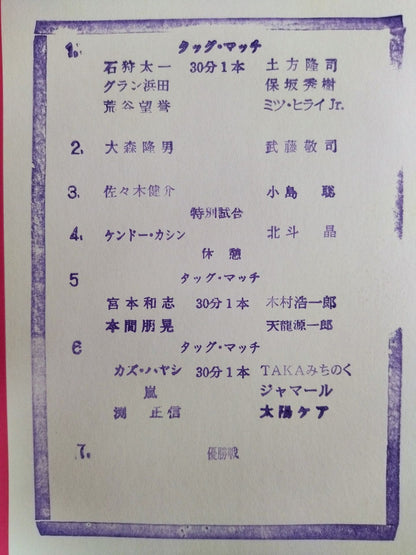 1. タッグ・マッチ
石狩太一 30分1本 土方隆司
グラン浜田 保坂秀樹
荒谷望誉 ミツ・ヒライJr.
2. 大森隆男 武藤敬司
3. 佐々木健介 小島聡
特別試合
4. ケンドー・カシン 北斗晶
休憩
5 タッグ・マッチ
宮本和志 30分1本 木村浩一郎
本間朋晃 天龍源一郎
6 タッグ・マッチ
カズ・ハヤシ 30分1本 TAKAみちのく
嵐 ジャマール
渕正信 太陽ケア
7. 優勝戦